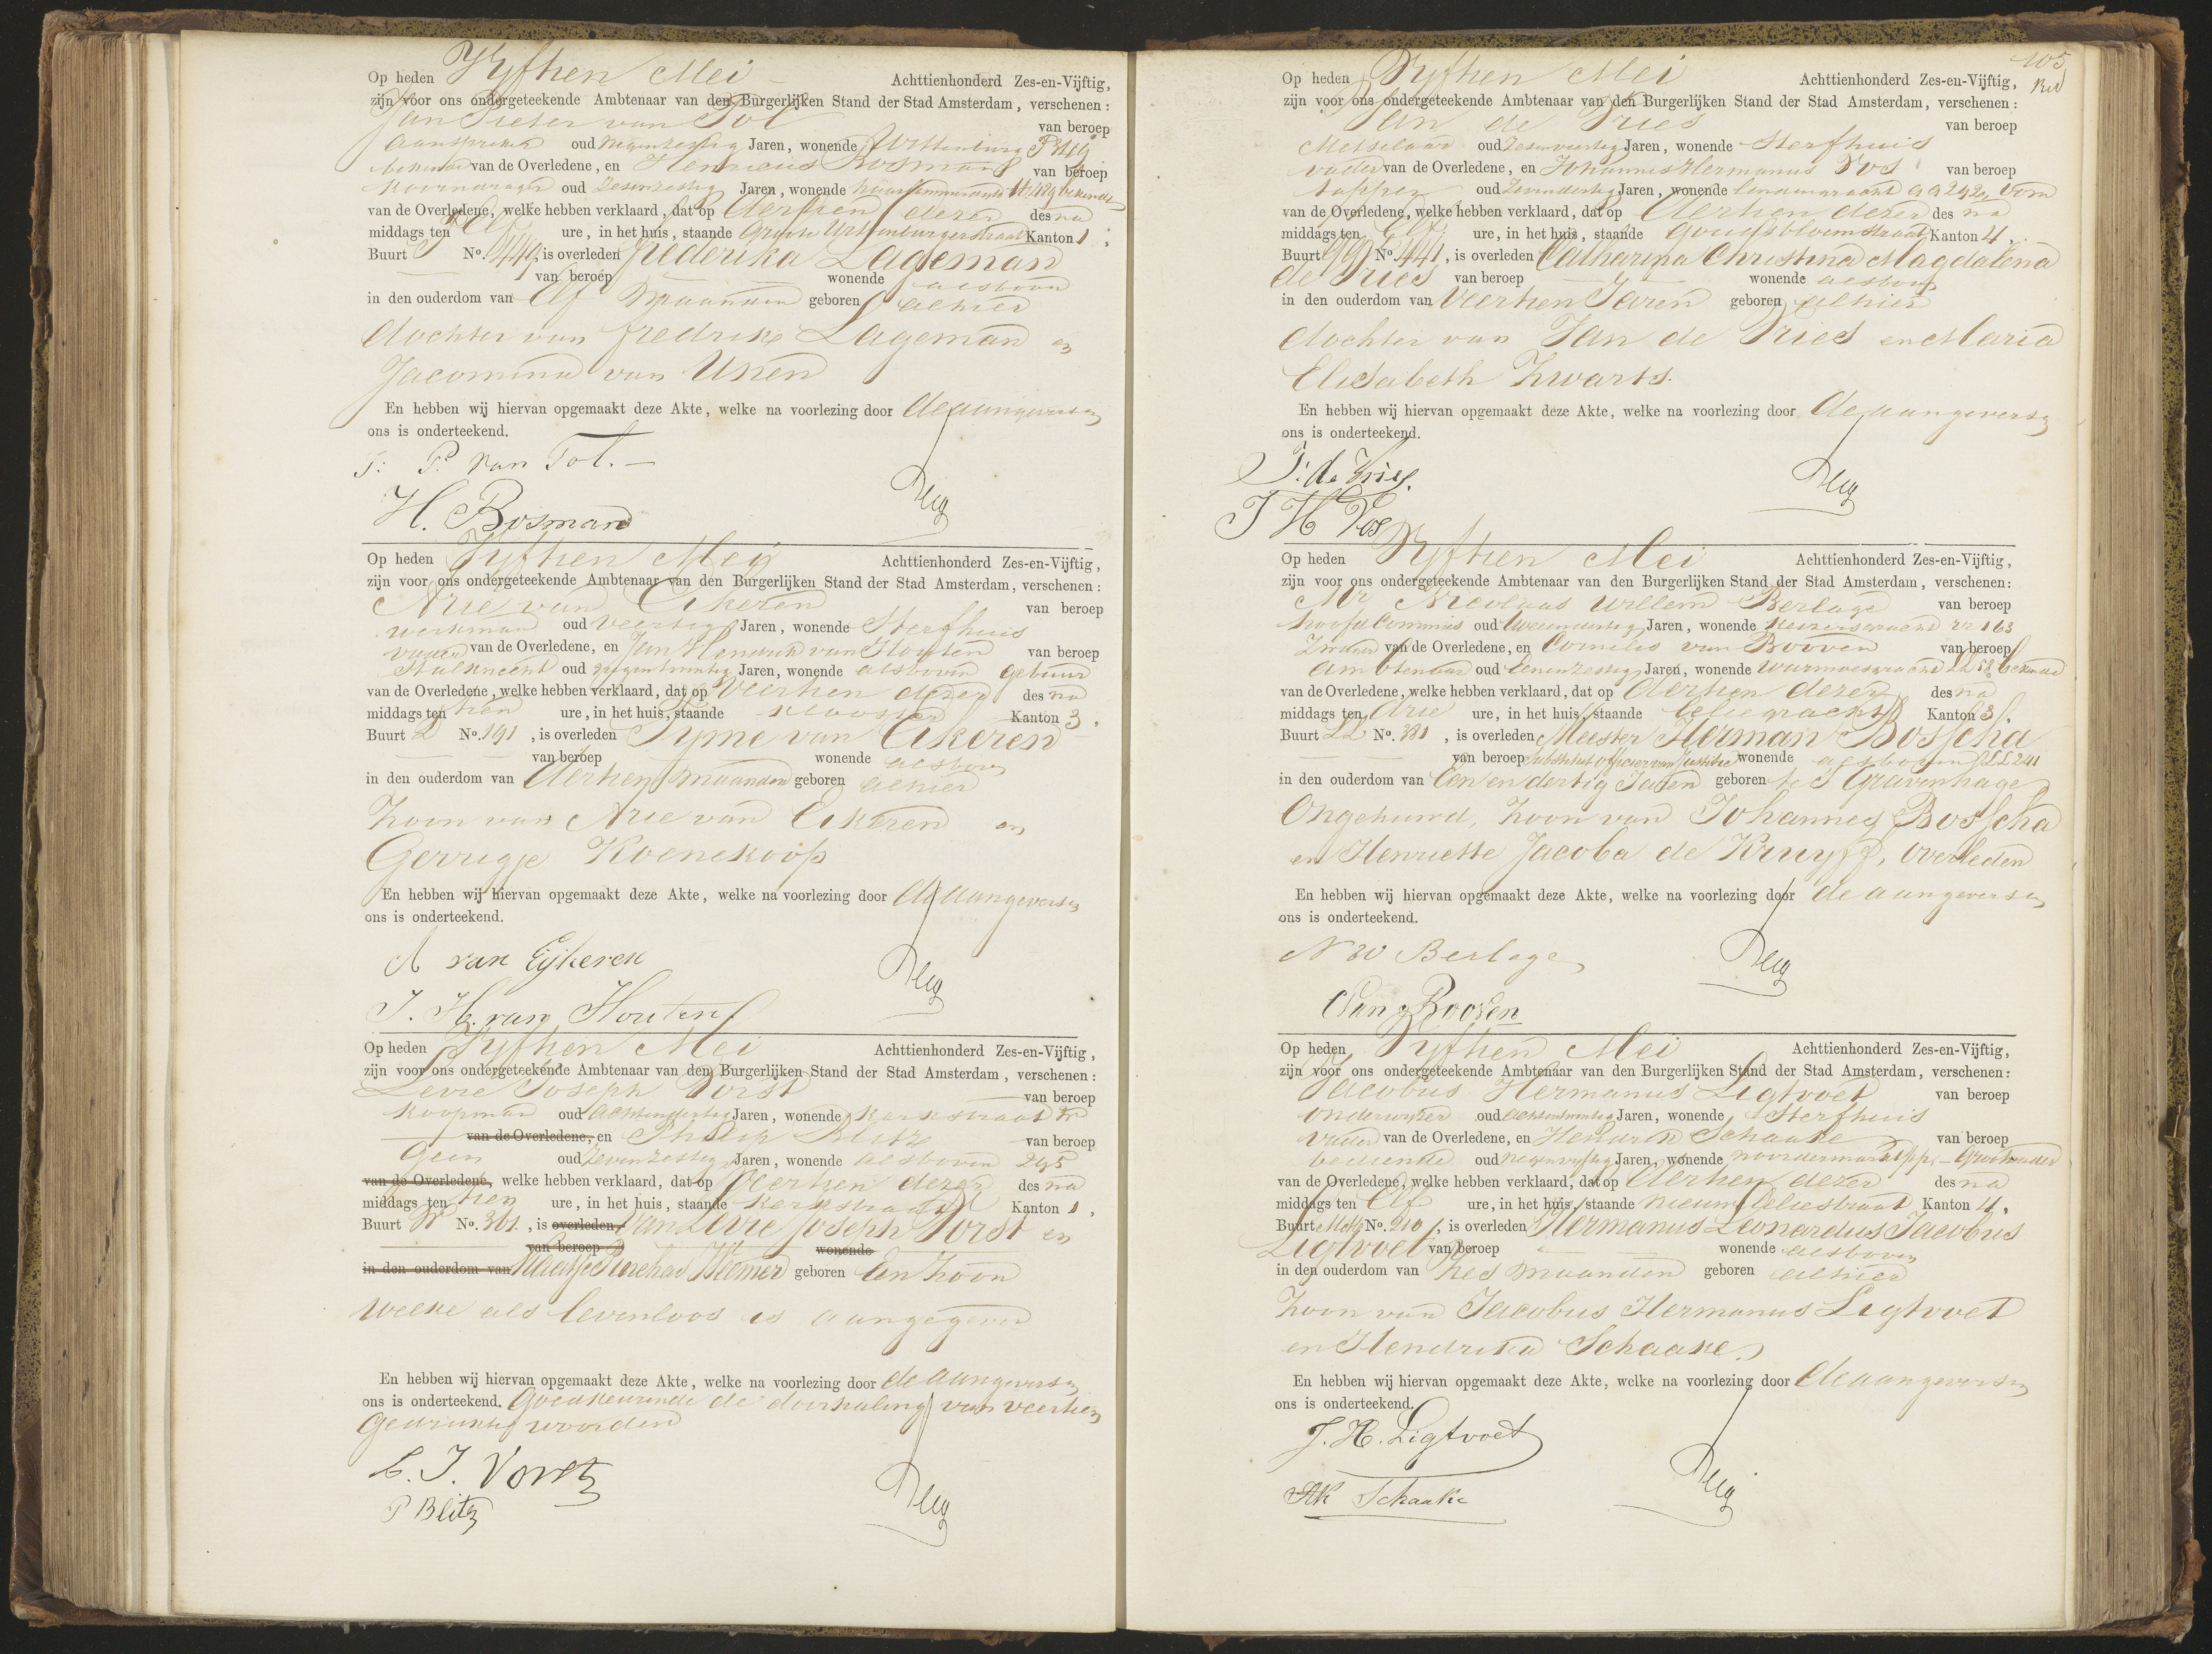 Op heden Vyftien Mei Achttienhonderd Zes-en-Vijftig,
zijn voor ons ondergeteekende Ambtenaar van den Burgerlijken Stand der Stad Amsterdam, verschenen:
Jan Pieter van Tol van beroep
aanspreker oud Negenzestig Jaren, wonende Wittenburg
bekende van de Overledene, en Henricus Bosman van beroep
Koorndrager oud Zesenzestig Jaren, wonende bekende
van de Overledene, welke hebben verklaard, dat op dertien dezer des na
middags ten Elf ure, in het huis, staande Groote Wittenburgerstraat Kanton 1,
Buurt No. 449, is overleden Frederika Lageman
van beroep wonende alsboven
in den ouderdom van Elf Maanden geboren alhier
dochter van Fredrik Lageman en
Jacomina van Unen
En hebben wij hiervan opgemaakt deze Akte, welke na voorlezing door de aangevers en
ons is onderteekend.
J: P. van Tol.
H. Bosman
Op heden Vyftien Mei Achttienhonderd Zes-en-Vijftig,
zijn voor ons ondergeteekende Ambtenaar van den Burgerlijken Stand der Stad Amsterdam, verschenen:
Arie van Eikeren van beroep
werkman oud Veertig Jaren, wonende Sterfhuis
vader van de Overledene, en Jan Hendrik van Houten van beroep
Stalknecht oud Negentwintig Jaren, wonende alsboven gebuur
van de Overledene, welke hebben verklaard, dat op Veertien dezer des na
middags ten tien ure, in het huis, staande Klooster Kanton 3.
Buurt No. 191, is overleden Tyme van Eikeren
van beroep wonende alsboven
in den ouderdom van dertien maanden geboren alhier
Zoon van Arie van Eikeren en
Gerrigje Koenekoop
En hebben wij hiervan opgemaakt deze Akte, welke na voorlezing door de aangevers en
ons is onderteekend.
A van Eijkeren
J. H. van Houten
Op heden Vyftien Mei Achttienhonderd Zes-en-Vijftig,
zijn voor ons ondergeteekende Ambtenaar van den Burgerlijken Stand der Stad Amsterdam, verschenen:
Levie Joseph Vorst van beroep
Koopman oud achtendertig Jaren, wonende Kerkstraat
van de Overledene, en Philip Blitz van beroep
Geen oud Zevenzestig Jaren, wonende alsboven 295
van de Overledene, welke hebben verklaard, dat op Veertien dezer des na
middags ten tien ure, in het huis, staande Kerkstraat Kanton 1,
Buurt No. 361, is overleden van Levie Joseph Vorst en
van beroep wonende
in den ouderdom van geboren een Zoon
welke als levenloos is aangegeven
En hebben wij hiervan opgemaakt deze Akte, welke na voorlezing door de aangevers en
ons is onderteekend. Goedkeurende de doorhaling van veertien
Gedrukte woorden
L. J. Vorst
P Blitz
105
Op heden Vyftien Mei Achttienhonderd Zes-en-Vijftig,
zijn voor ons ondergeteekende Ambtenaar van den Burgerlijken Stand der Stad Amsterdam, verschenen:
Jan de Vries van beroep
Metselaar oud Zesenveertig Jaren, wonende Sterfhuis
vader van de Overledene, en Johannes Hermanus Vos van beroep
tapper oud Zevendertig Jaren, wonende Lindengracht oom
van de Overledene, welke hebben verklaard, dat op dertien dezer des na
middags ten Elf ure, in het huis, staande Goudsbloemstraat Kanton 4,
Buurt No. 441, is overleden Catharina Christina Magdalena
de Vries van beroep wonende alsboven
in den ouderdom van Veertien Jaren geboren alhier
dochter van Jan de Vries en Maria
Elisabeth Zwarts.
En hebben wij hiervan opgemaakt deze Akte, welke na voorlezing door de aangevers en
ons is onderteekend.
J: de Vries.
J H Vos
Op heden Vyftien Mei Achttienhonderd Zes-en-Vijftig,
zijn voor ons ondergeteekende Ambtenaar van den Burgerlijken Stand der Stad Amsterdam, verschenen:
Mr Nicolaas Willem Berlage van beroep
hoofd Commies oud tweeendertig Jaren, wonende Keizersgracht 163
Zwager van de Overledene, en Cornelis van Booven van beroep
ambtenaar oud Eenenzestig Jaren, wonende Warmoesgracht LL 52 bekende
van de Overledene, welke hebben verklaard, dat op dertien dezer des na
middags ten drie ure, in het huis, staande Leliegracht Kanton 3.
Buurt LL No. 381, is overleden Meester Herman Bosscha
van beroep Substituut Officier van Justitie wonende alsboven LL 241
in den ouderdom van Een en dertig Jaren geboren te S Gravenhage
Ongehuwd, Zoon van Johannes Bosscha
en Henriette Jacoba de Kruyff, overleden
En hebben wij hiervan opgemaakt deze Akte, welke na voorlezing door de aangevers en
ons is onderteekend.
N W Berlage
C van Booven
Op heden Vyftien Mei Achttienhonderd Zes-en-Vijftig,
zijn voor ons ondergeteekende Ambtenaar van den Burgerlijken Stand der Stad Amsterdam, verschenen:
Jacobus Hermanus Ligtvoet van beroep
Onderwyzer oud achtentwintig Jaren, wonende Sterfhuis
vader van de Overledene, en Hendrik Schaake van beroep
bediende oud Negenvyftig Jaren, wonende Noordermarkt Grootvader
van de Overledene, welke hebben verklaard, dat op dertien dezer des na
middags ten Elf ure, in het huis, staande Nieuwe Leliestraat Kanton 4.
Buurt No. 210, is overleden Hermanus Leonardus Jacobus
Ligtvoet van beroep wonende alsboven
in den ouderdom van Zes maanden geboren alhier
Zoon van Jacobus Hermanus Ligtvoet
en Hendrika Schaake.
En hebben wij hiervan opgemaakt deze Akte, welke na voorlezing door de aangevers en
ons is onderteekend.
J. H. Ligtvoet
Schaake